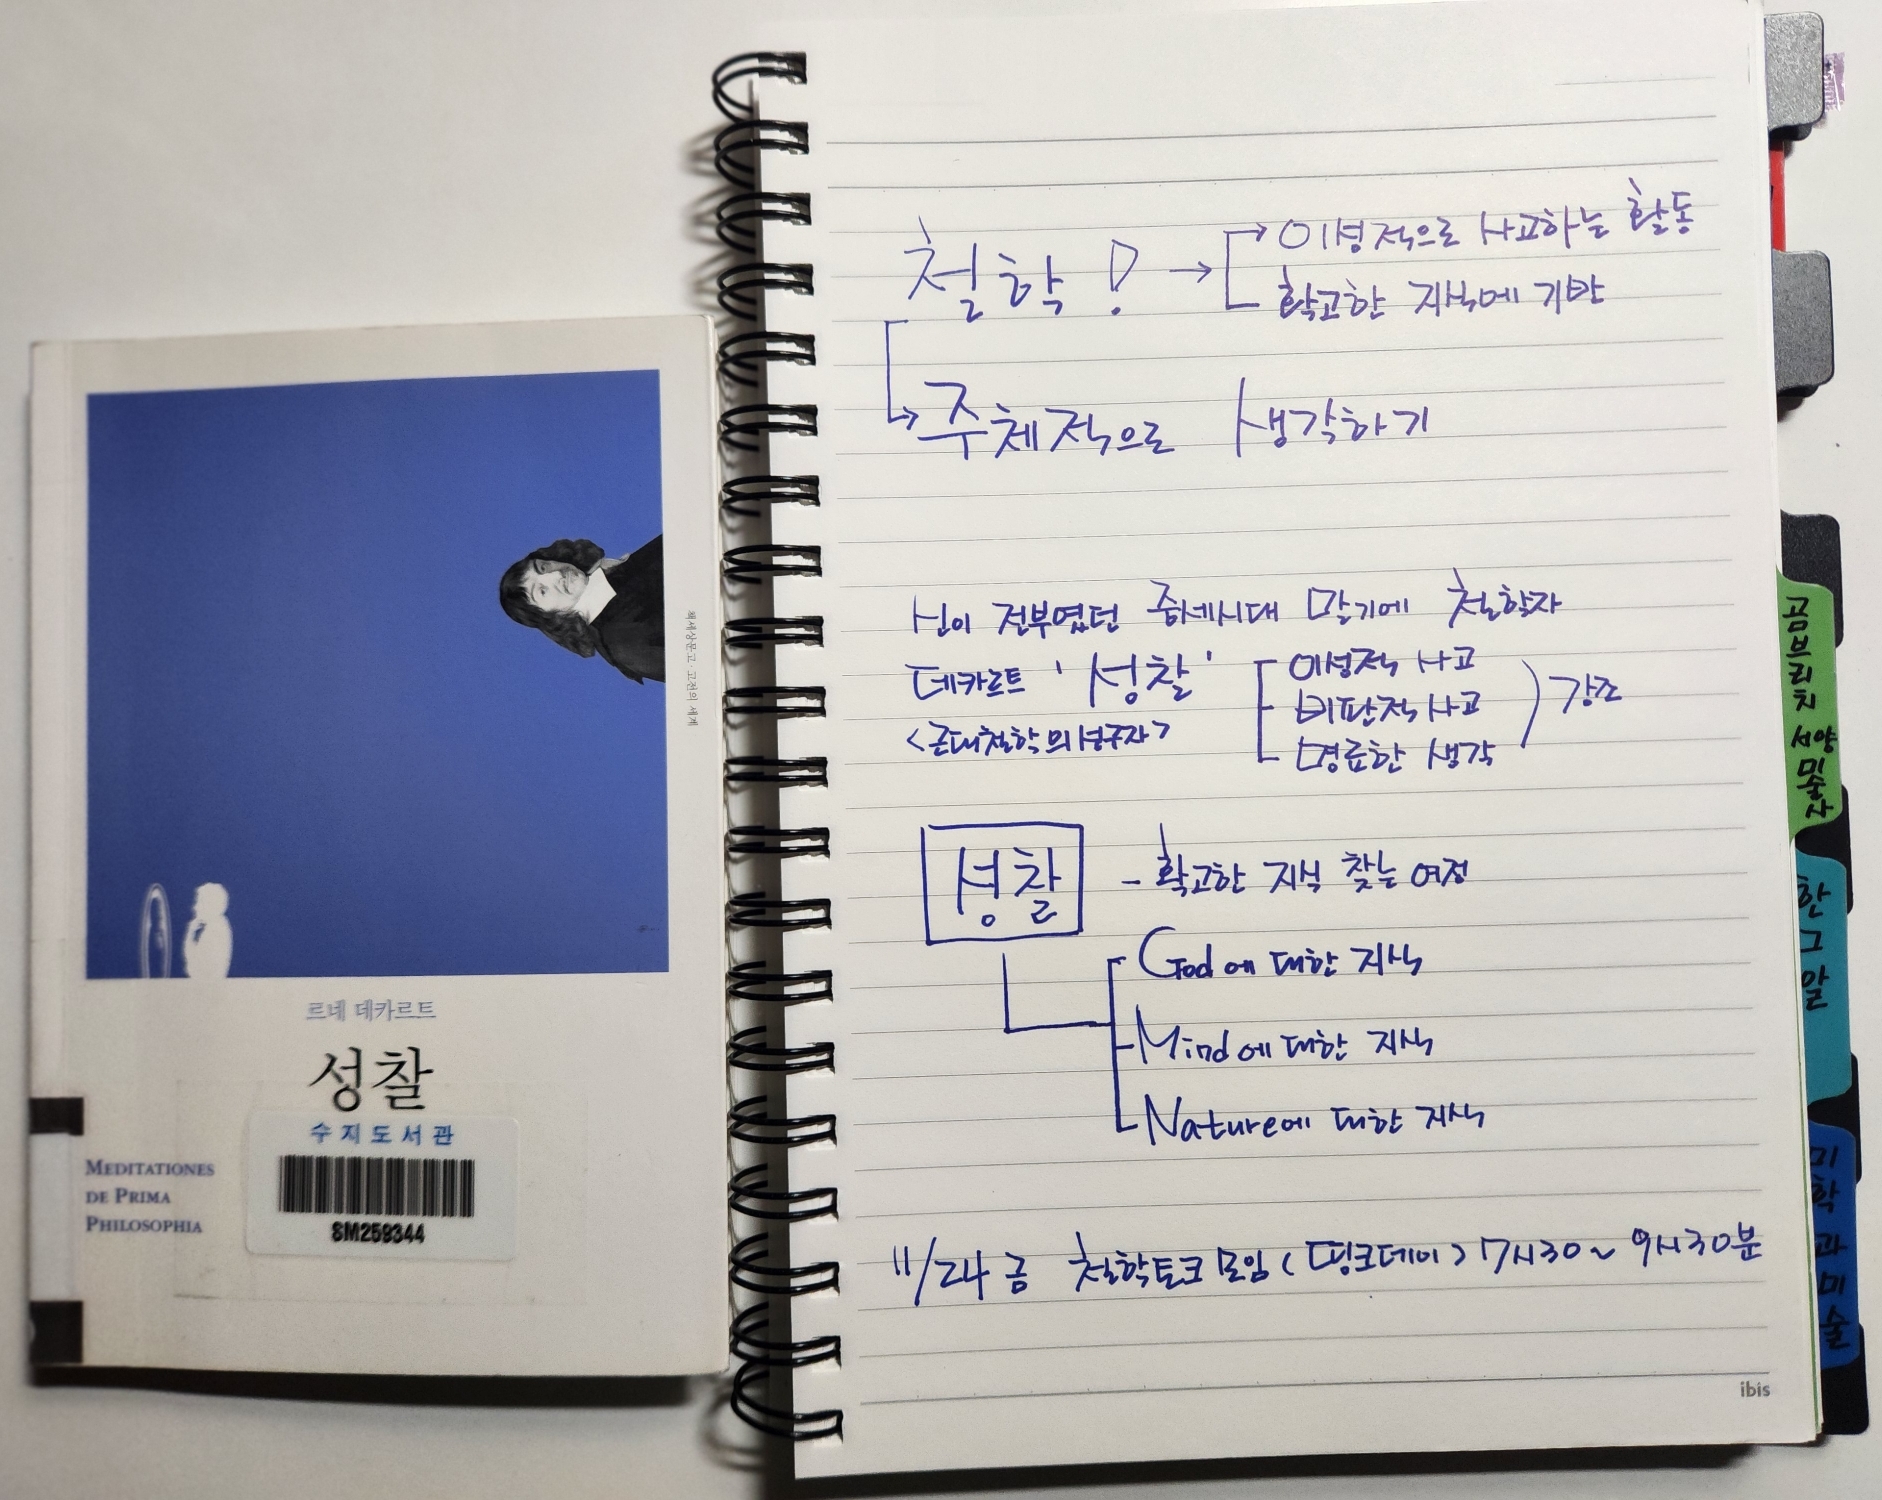 책세상문고·고전의 세계
르네 데카르트
성찰
수지도서관
MEDITATIONES
DE PRIMA
PHILOSOPHIA
SM259344
철학! → → 이성적으로 사고하는 활동
확고한 지식에 기반
→ 주체적으로 생각하기
신이 전부였던 중세시대 말기에 철학자
데카르트 '성찰'
<근대철학의 선구자>
이성적 사고
비판적 사고
명료한 생각
) 강조
성찰 - 확고한 지식 찾는 여정
God에 대한 지식
Mind에 대한 지식
Nature에 대한 지식
11/24 금 철학토크 모임 (핑크데이) 7시30~ 9시30분
ibis
곰브리치 서양미술사
한그알
미학과 미술